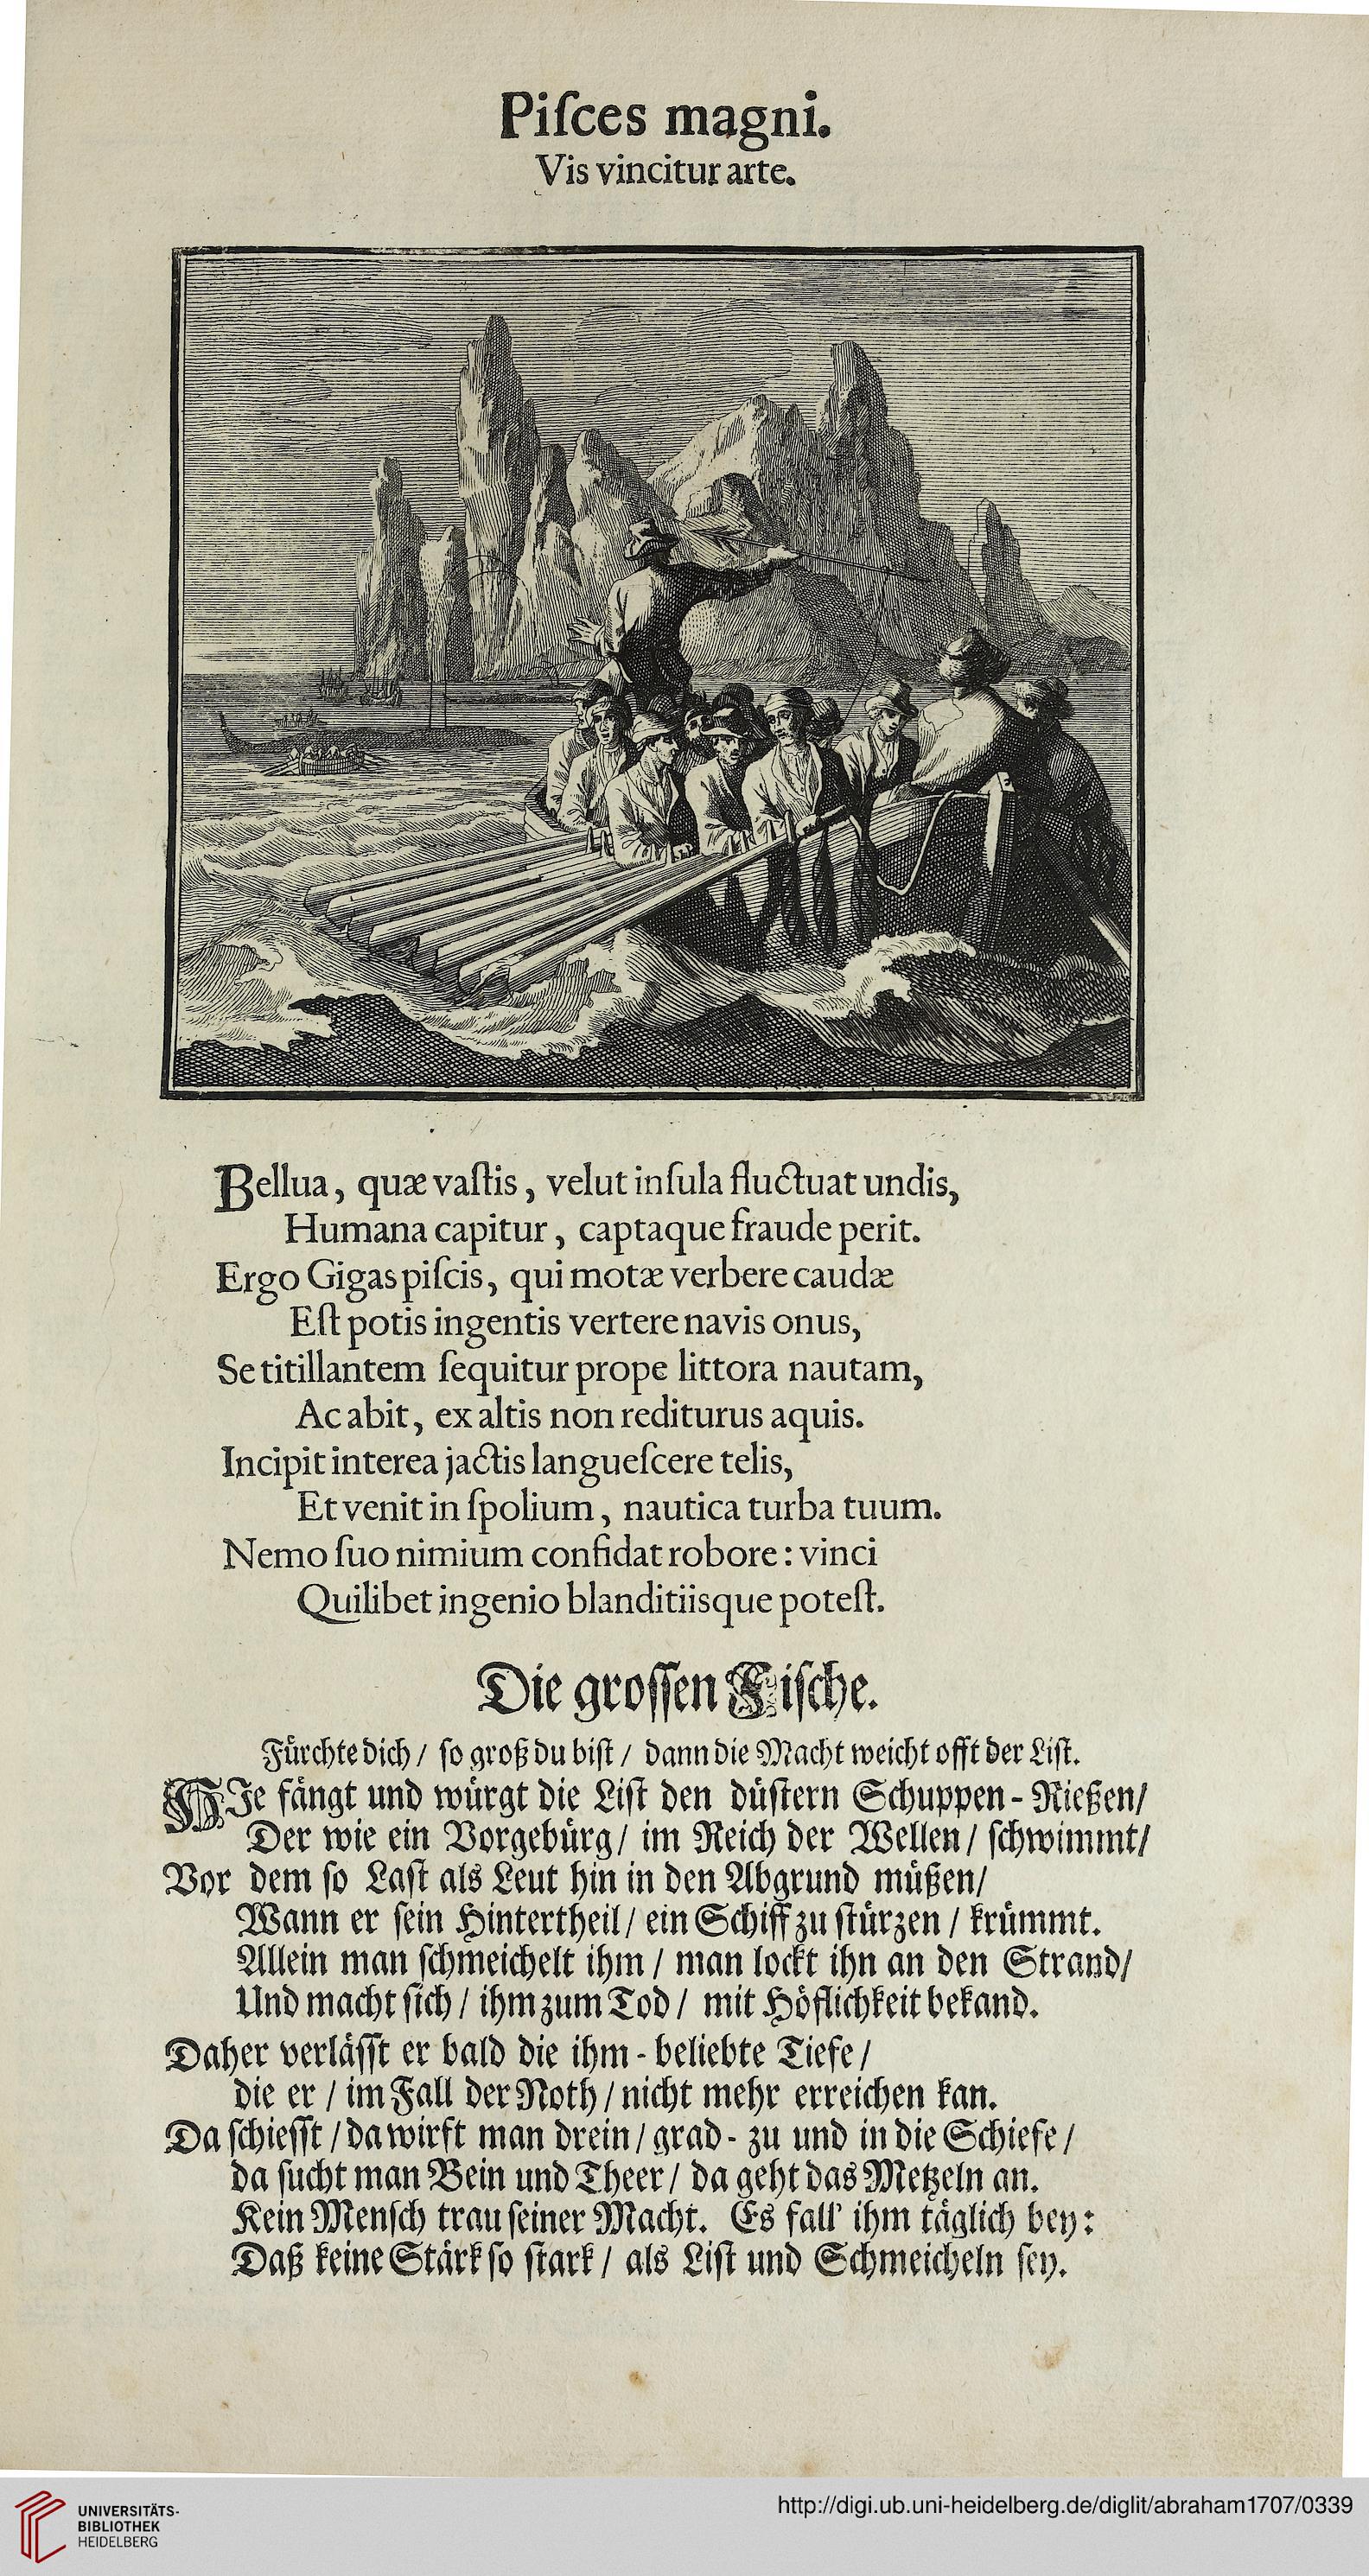 Piſces magni.
Vis vincitur arte.
Bellua, quæ vaſtis, velut inſula fluctuat undis,
Humana capitur, captaque fraude perit.
Ergo Gigas piſcis, qui motæ verbere caudæ
Eſt potis ingentis vertere navis onus,
Se titillantem ſequitur prope littora nautam,
Ac abit, ex altis non rediturus aquis.
Incipit interea jactis langueſcere telis,
Et venit in ſpolium, nautica turba tuum.
Nemo ſuo nimium confidat robore: vinci
Quilibet ingenio blanditiisque poteſt.
Die groſſen Fiſche.
Fürchte dich / ſo groß du biſt / dann die Macht weicht offt der Liſt.
HIe fängt und würgt die Liſt den düſtern Schuppen-Rießen/
Der wie ein Vorgebürg / im Reich der Wellen / ſchwimmt/
Vor dem ſo Laſt als Leut hin in den Abgrund müßen/
Wann er ſein Hintertheil / ein Schiff zu ſtürzen / krümmt.
Allein man ſchmeichelt ihm / man lockt ihn an den Strand/
Und macht ſich / ihm zum Tod / mit Höflichkeit bekand.
Daher verläſſt er bald die ihm-beliebte Tiefe /
die er / im Fall der Noth / nicht mehr erreichen kan.
Da ſchieſſt / da wirft man drein / grad-zu und in die Schiefe /
da ſucht man Bein und Theer / da geht das Metzeln an.
Kein Menſch trau ſeiner Macht. Es fall' ihm täglich bey:
Daß keine Stärk ſo ſtark / als Liſt und Schmeicheln ſey.
UNIVERSITÄTS-
BIBLIOTHEK
HEIDELBERG
http://digi.ub.uni-heidelberg.de/diglit/abraham1707/0339